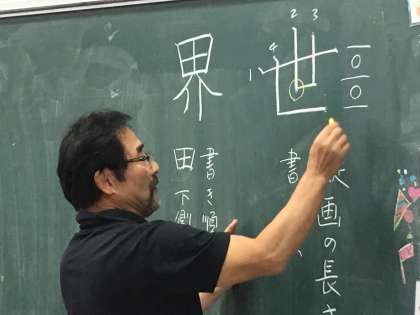 2 3
4
1
世
画の長さ
書
界
書き順
田 下側